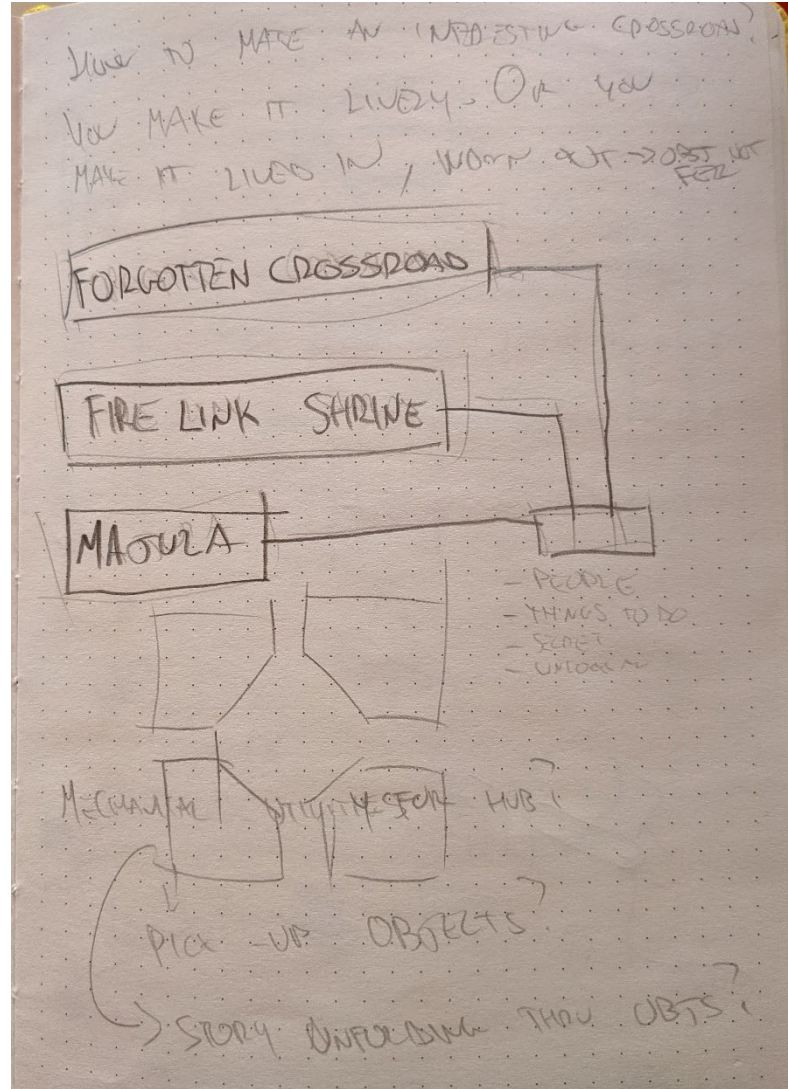 HOW TO MAKE AN INTERESTING CROSSROAD?
YOU MAKE IT LIVELY. OR YOU
MAKE IT LIVED IN, WORN OUT →
FORGOTTEN CROSSROAD
FIRE LINK SHRINE
MAJULA
- PEOPLE
- THINGS TO DO
- SECRET
MECHANICAL HUB?
PICK-UP OBJECTS?
STORY UNFOLDING THRU OBJTS?